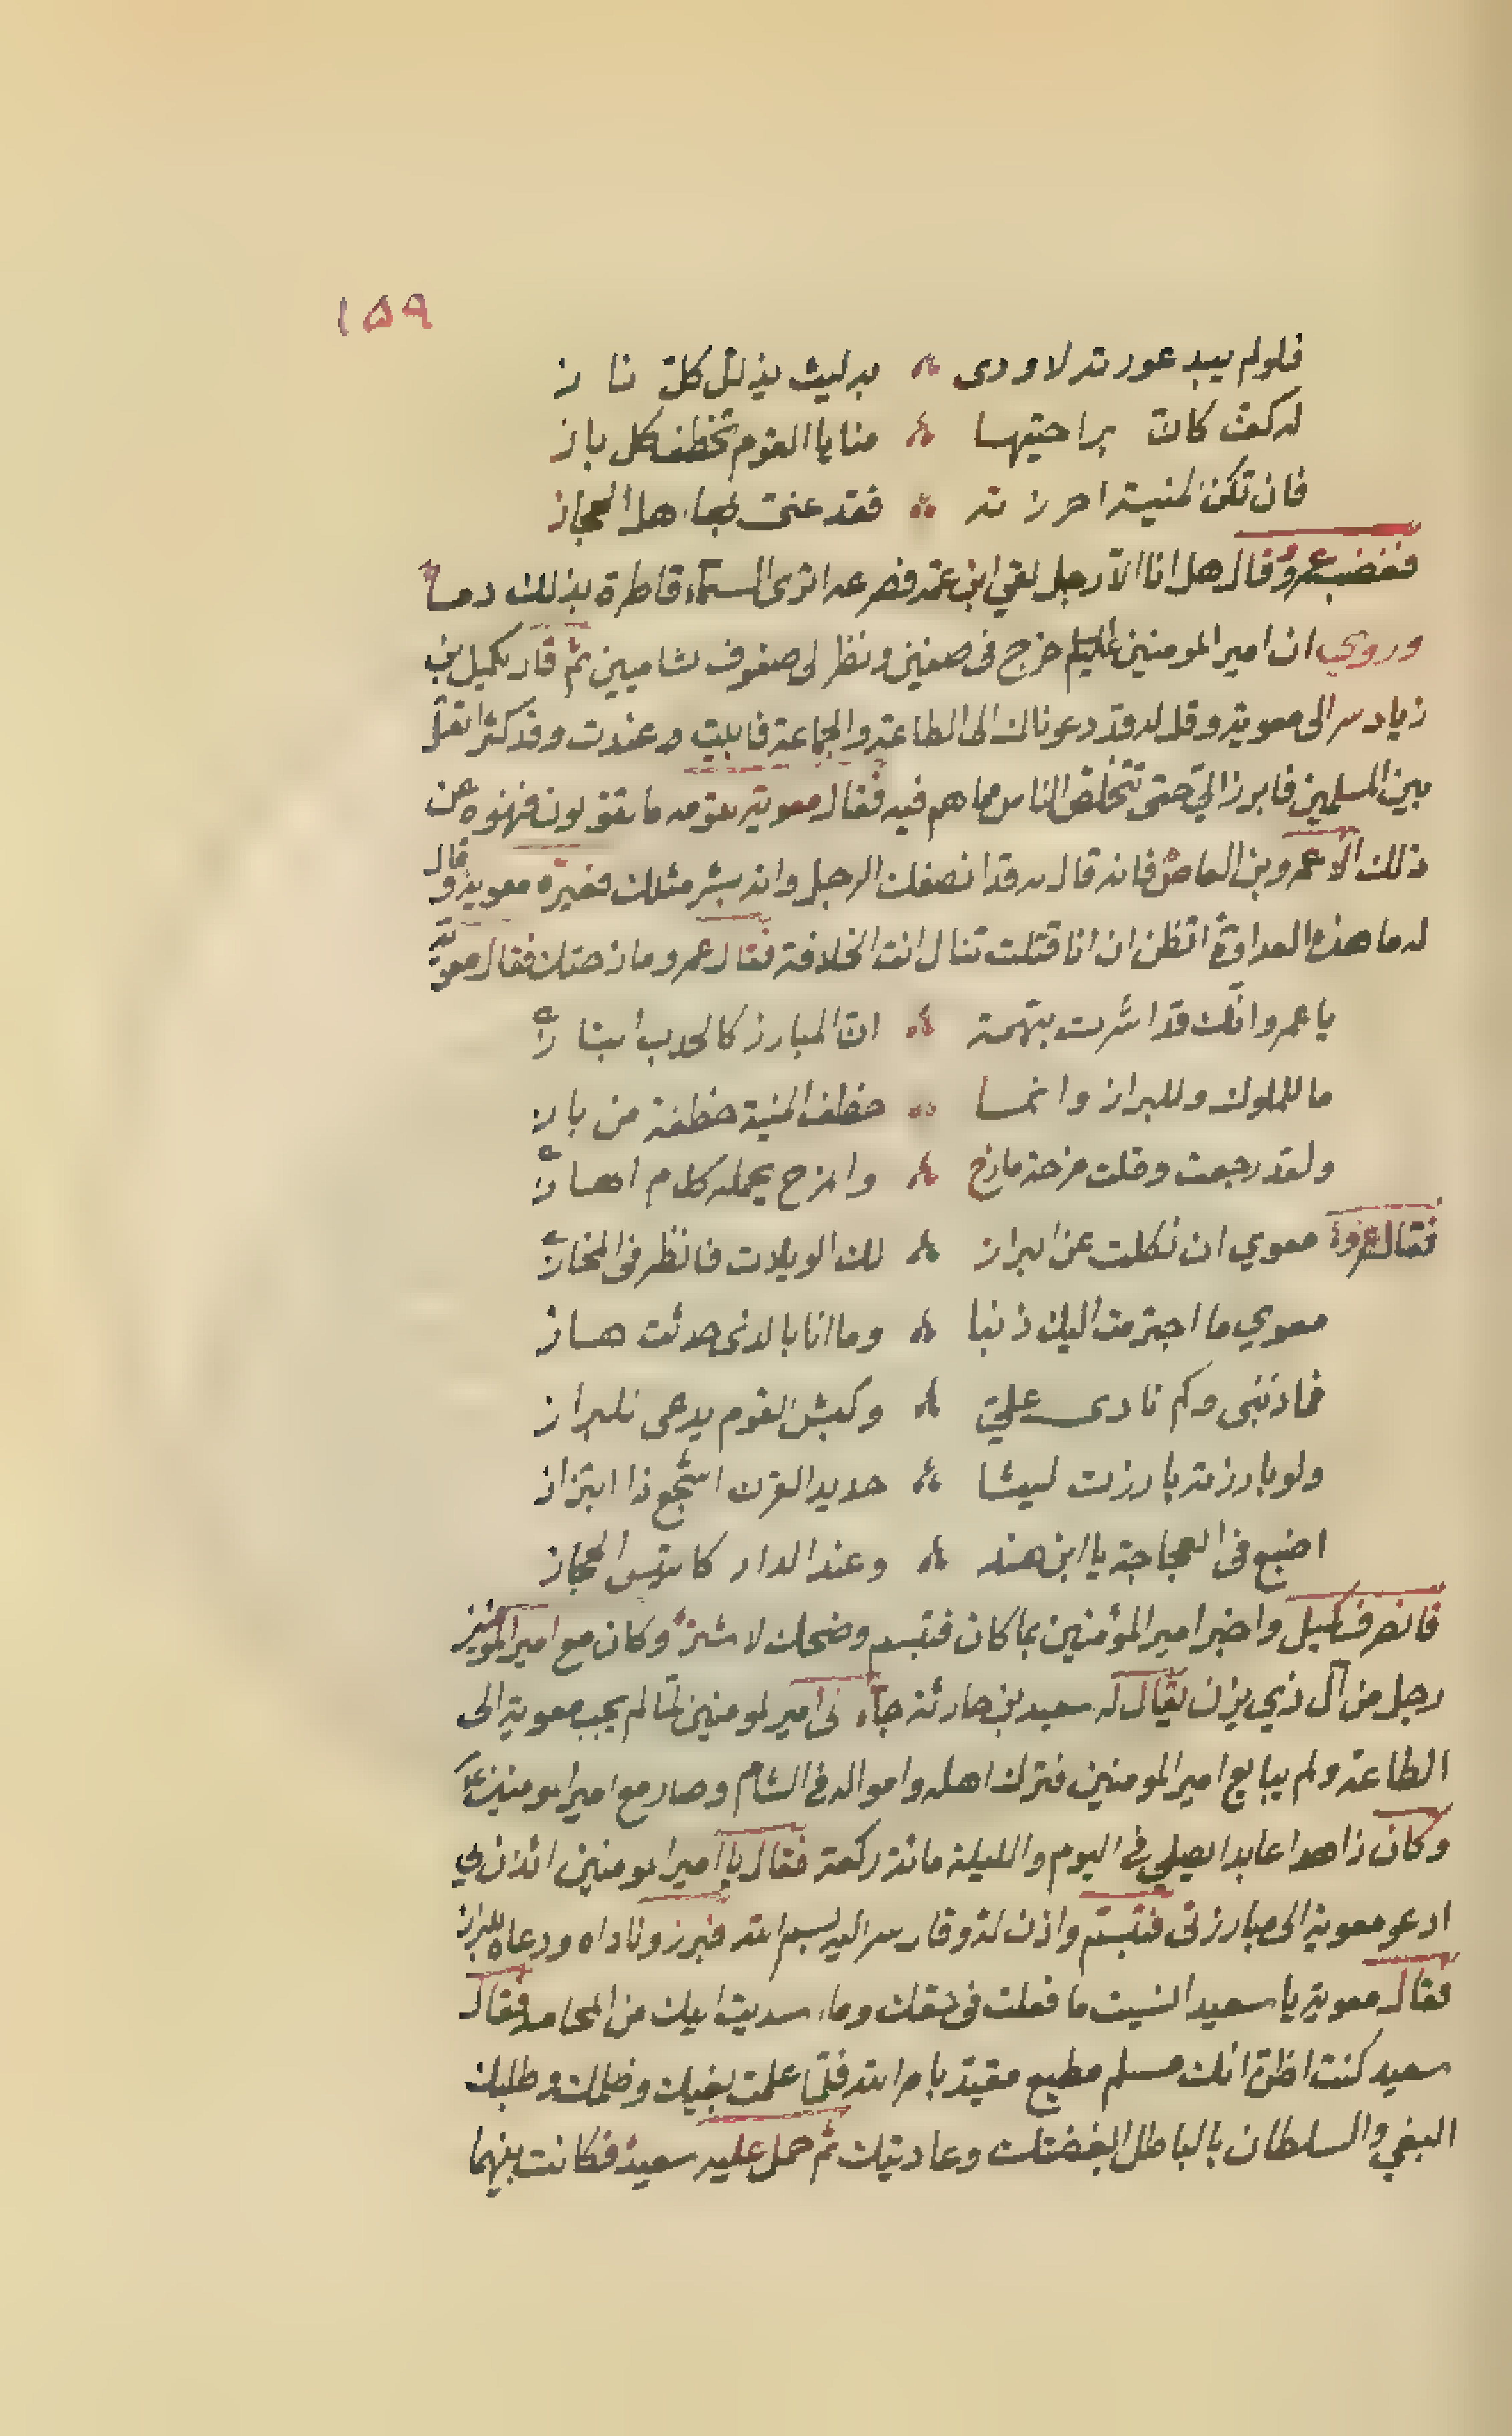 ١٥٩
فلو لم يبد عورته لاودى ؞ به ليث يذلل كل نازي
له كف كان براحتيها ؞ منايا القوم تخطف كل باز
فان تكن المنية احرزته ؞ فقد عنت بها اهل الحجاز
فغضب عمرو وقال هل انا الا رجل لقي ابن عمه فصرعه اترى السماء قاطرة بذلك دما
وروي ان امير المومنين عليلم خرج في صفين ونظر الى صفوف الشاميين ثم قال لكميل بن
زياد سر الى معوية وقل له قد دعوناك الى الطاعة والجماعة فابيت وعندت وقد كثر القتل
بين المسلمين فابرز الي حتى تتخلص الناس مما هم فيه فقال معوية لقومه ما تقولون فنهوه عن
ذلك الا عمرو بن العاص فانه قال له قد انصفك الرجل وانه بشر مثلك فعيره معوية وقال
له ما هذه العداوة اتظن ان انا قتلت تنال انت الخلافة فقال عمرو مازحتك فقال معوية
يا عمرو انك قد اشرت بتهمة ؞ ان المبارز كالجدي النازي
ما للملوك وللبراز وانما ؞ خطف المنية خطفة من باز
ولقد رجعت وقلت مزحة مازح ؞ والمزح يحمله كلام الهازي
فقال عمرو معوي ان نكلت عن البراز ؞ لك الويلات فانظر في المخازي
معوي ما اجترمت اليك ذنبا ؞ وما انا بالذي حدثت هاز
فما ذنبي وكم نادى علي ؞ وكبش القوم يدعى للبراز
ولو بارزته بارزت ليثا ؞ حديد القرن اشجع ذا ابتزاز
اضبع في العجاجة يا ابن هند ؞ وعند الدار كالتيس الحجاز
فانصرف كميل واخبر امير المؤمنين بما كان فتبسم وضحك الاشتر وكان مع امير المومنين
رجل من آل ذي يزن يقال له سعيد بن حارثة جاء الى امير المومنين لما لم يجب معوية الى
الطاعة ولم يبايع امير المومنين فترك اهله وامواله في الشام وصار مع امير المومنين ع
وكان زاهدا عابدا يصلي في اليوم والليلة مائة ركعة فقال يا امير المومنين ائذن لي
ادعو معوية الى مبارزتي فتبسم واذن له وقال سر اليه بسم الله فبرز وناداه ودعاه للبراز
فقال معوية يا سعيد انسيت ما فعلت في حقك وما اسديت اليك من المحامد فقال
سعيد كنت اظن انك مسلم مطيع مقيد بامر الله فلما علمت بغيك وظلمك وطلبك
البغي والسلطان بالباطل ابغضتك وعاديتك ثم حمل عليه سعيد فكانت بينهما